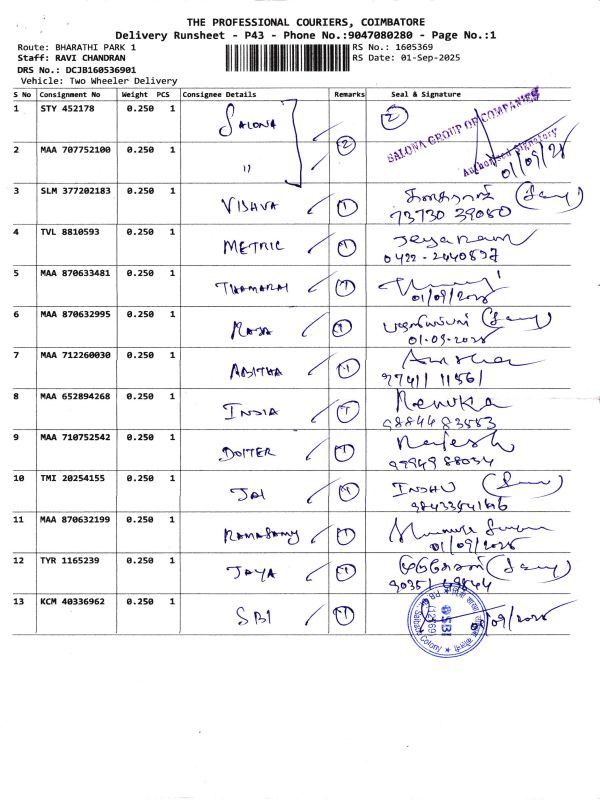 THE PROFESSIONAL COURIERS, COIMBATORE
Delivery Runsheet - P43 - Phone No.:9047080280 - Page No.:1
Route: BHARATHI PARK 1 RS No.: 1605369
Staff: RAVI CHANDRAN RS Date: 01-Sep-2025
DRS No.: DCJB160536901
Vehicle: Two Wheeler Delivery
S No Consignment No Weight PCS Consignee Details Remarks Seal & Signature
1 STY 452178 0.250 1 SALONA 2 SALONA GROUP OF COMPANIES
2 MAA 707752100 0.250 1 " 2 Authorised Signatory 01/09/25
3 SLM 377202183 0.250 1 VISHVA 1
73730 39050
4 TVL 8810593 0.250 1 METRIC 1 Jeyaram
0422-2440897
5 MAA 870633481 0.250 1 THAMARAI 1
01/09/2025
6 MAA 870632995 0.250 1 RAJA 1
01-09-2025
7 MAA 712260030 0.250 1 ABITHA 1
97411 11561
8 MAA 652894268 0.250 1 INDIA 1 Renuka
9884483553
9 MAA 710752542 0.250 1 DOITER 1 Rajesh
99949 88034
10 TMI 20254155 0.250 1 JAI 1 INDHU
11 MAA 870632199 0.250 1 RAMASAMY 1
01/09/2025
12 TYR 1165239 0.250 1 JAYA 1
90351 49844
13 KCM 40336962 0.250 1 SBI 1 SBI Colony /09/2025